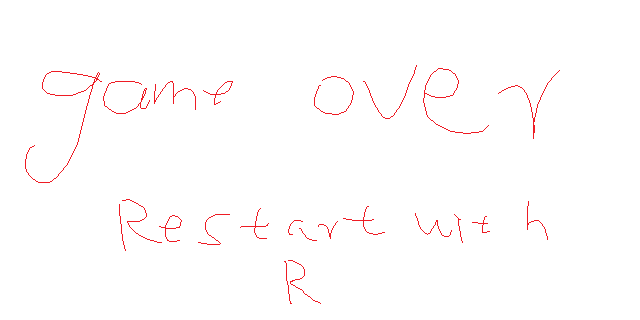 game over
Restart with
R